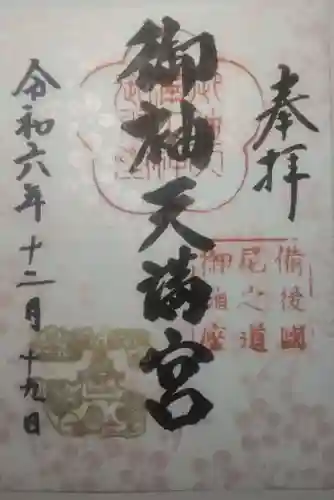 奉拝
備後國
尾之道
御袖座
御袖天満宮
令和六年十二月十九日